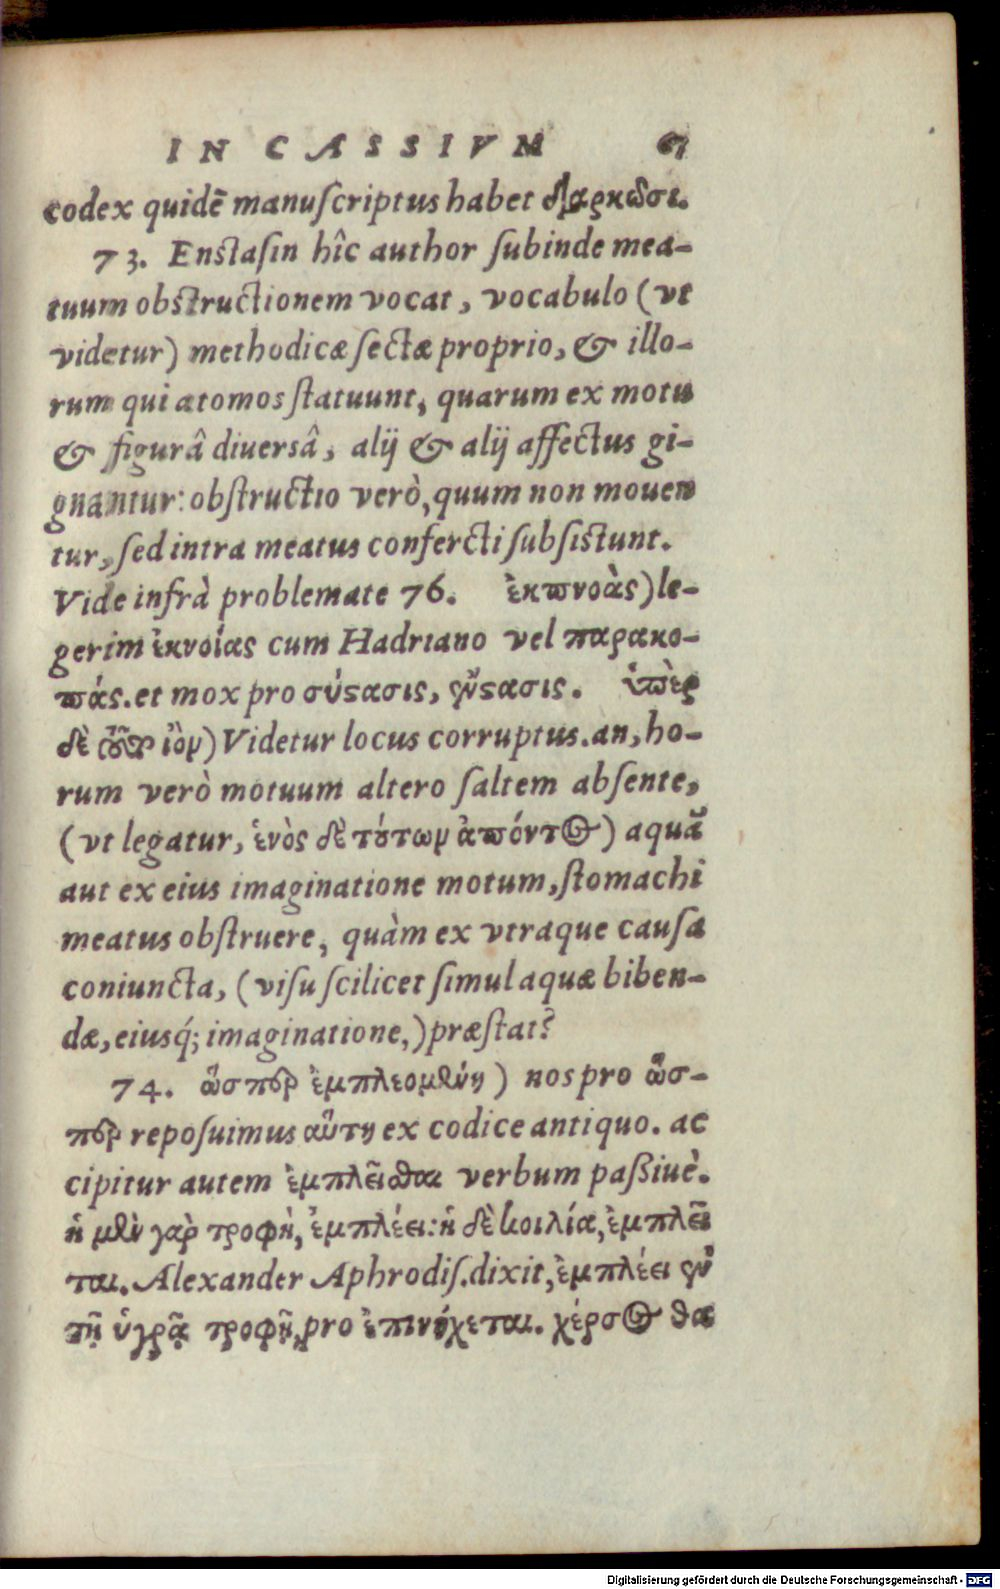 IN CASSIVM 67
codex quidē manuſcriptus habet διαρκοῦσι.
73. Enſtaſin hîc author ſubinde mea-
tuum obſtructionem vocat, vocabulo (vt
videtur) methodicæ ſectæ proprio, & illo-
rum qui atomos ſtatuunt, quarum ex motu
& figurâ diuersâ, alij & alij affectus gi-
gnantur: obſtructio verò, quum non mouen
tur, ſed intra meatus confercti ſubſiſtunt.
Vide infrà problemate 76. ἐκπνοὰς) le-
gerim ἐκνοίας cum Hadriano vel παρακο-
πάς. et mox pro σύστασις, ἔνστασις. ὑπὲρ
δὲ ιὸν) Videtur locus corruptus. an, ho-
rum verò motuum altero ſaltem abſente,
(vt legatur, ἑνὸς δὲ τούτων ἀπόντος) aquā
aut ex eius imaginatione motum, ſtomachi
meatus obſtruere, quàm ex vtraque cauſa
coniuncta, (viſu ſcilicet ſimul aquæ biben-
dæ, eiusq́; imaginatione,) præſtat?
74. ὥσπερ ἐμπλεομένη) nos pro ὥσ-
περ repoſuimus αὕτη ex codice antiquo. ac
cipitur autem ἐμπλεῖσθαι verbum paßiuè.
ἡ μὲν γὰρ τροφὴ, ἐμπλέει: ἡ δὲ κοιλία, ἐμπλεῖ
ται. Alexander Aphrodiſ. dixit, ἐμπλέει ἐν
τῇ ὑγρᾷ τροφῇ, pro ἐπινήχεται. χέρσος θα
Digitalisierung gefördert durch die Deutsche Forschungsgemeinschaft - DFG